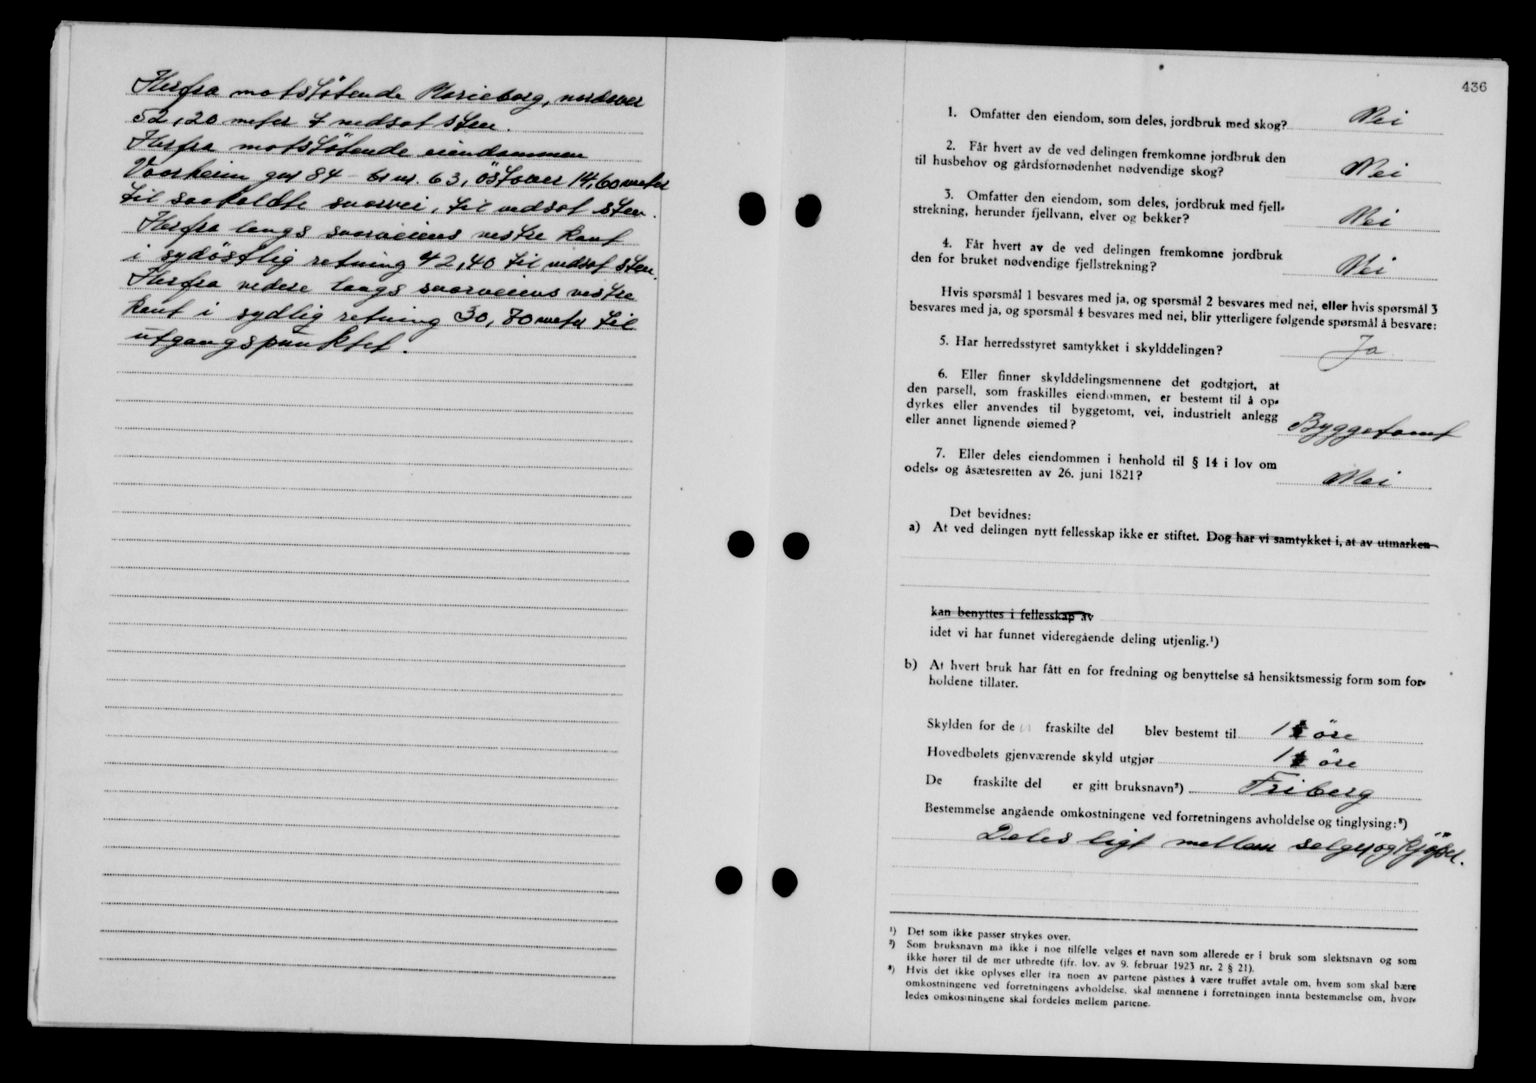 Herfra motstötende Marieborg, nordover
52,20 meter t nedsat sten.
Herfra motstötende eiendommen
Voorheim gnr 84 - br nr. 63, östover 14,60 meter
til saakaldte svarvei, til nedsat sten.
Herfra langs svarveiens vestre kant
i sydöstlig retning 42,40 til nedsat sten.
Herfra videre langs svarveiens vestre
kant i sydlig retning 30,70 meter til
utgangspunktet.
436
1. Omfatter den eiendom, som deles, jordbruk med skog? Nei
2. Får hvert av de ved delingen fremkomne jordbruk den
til husbehov og gårdsfornødenhet nødvendige skog? Nei
3. Omfatter den eiendom, som deles, jordbruk med fjell-
strekning, herunder fjellvann, elver og bekker? Nei
4. Får hvert av de ved delingen fremkomne jordbruk
den for bruket nødvendige fjellstrekning? Nei
Hvis spørsmål 1 besvares med ja, og spørsmål 2 besvares med nei, eller hvis spørsmål 3
besvares med ja, og spørsmål 4 besvares med nei, blir ytterligere følgende spørsmål å besvare:
5. Har herredsstyret samtykket i skylddelingen? Ja
6. Eller finner skylddelingsmennene det godtgjort, at
den parsell, som fraskilles eiendommen, er bestemt til å op-
dyrkes eller anvendes til byggetomt, vei, industrielt anlegg
eller annet lignende øiemed? Byggetomt
7. Eller deles eiendommen i henhold til § 14 i lov om
odels- og åsætesretten av 26. juni 1821? Nei
Det bevidnes:
a) At ved delingen nytt fellesskap ikke er stiftet. Dog har vi samtykket i, at av utmarken
kan benyttes i fellesskap av
idet vi har funnet videregående deling utjenlig.¹)
b) At hvert bruk har fått en for fredning og benyttelse så hensiktsmessig form som for-
holdene tillater.
Skylden for de fraskilte del blev bestemt til 1 öre
Hovedbølets gjenværende skyld utgjør 1 öre
De fraskilte del er gitt bruksnavn²) Friberg
Bestemmelse angående omkostningene ved forretningens avholdelse og tinglysing:³)
Deles ligt mellem selger og kjöper.
¹) Det som ikke passer strykes over.
²) Som bruksnavn må ikke i noe tilfelle velges et navn som allerede er i bruk som slektsnavn og som
ikke hører til de mer utbredte (jfr. lov. av 9. februar 1923 nr. 2 § 21).
³) Hvis det ikke oplyses eller fra noen av partene påståes å være truffet avtale om, hvem som skal bære
omkostningene ved forretningens avholdelse, skal mennene i forretningen innta bestemmelse om, hvor-
ledes omkostningene skal fordeles mellem partene.